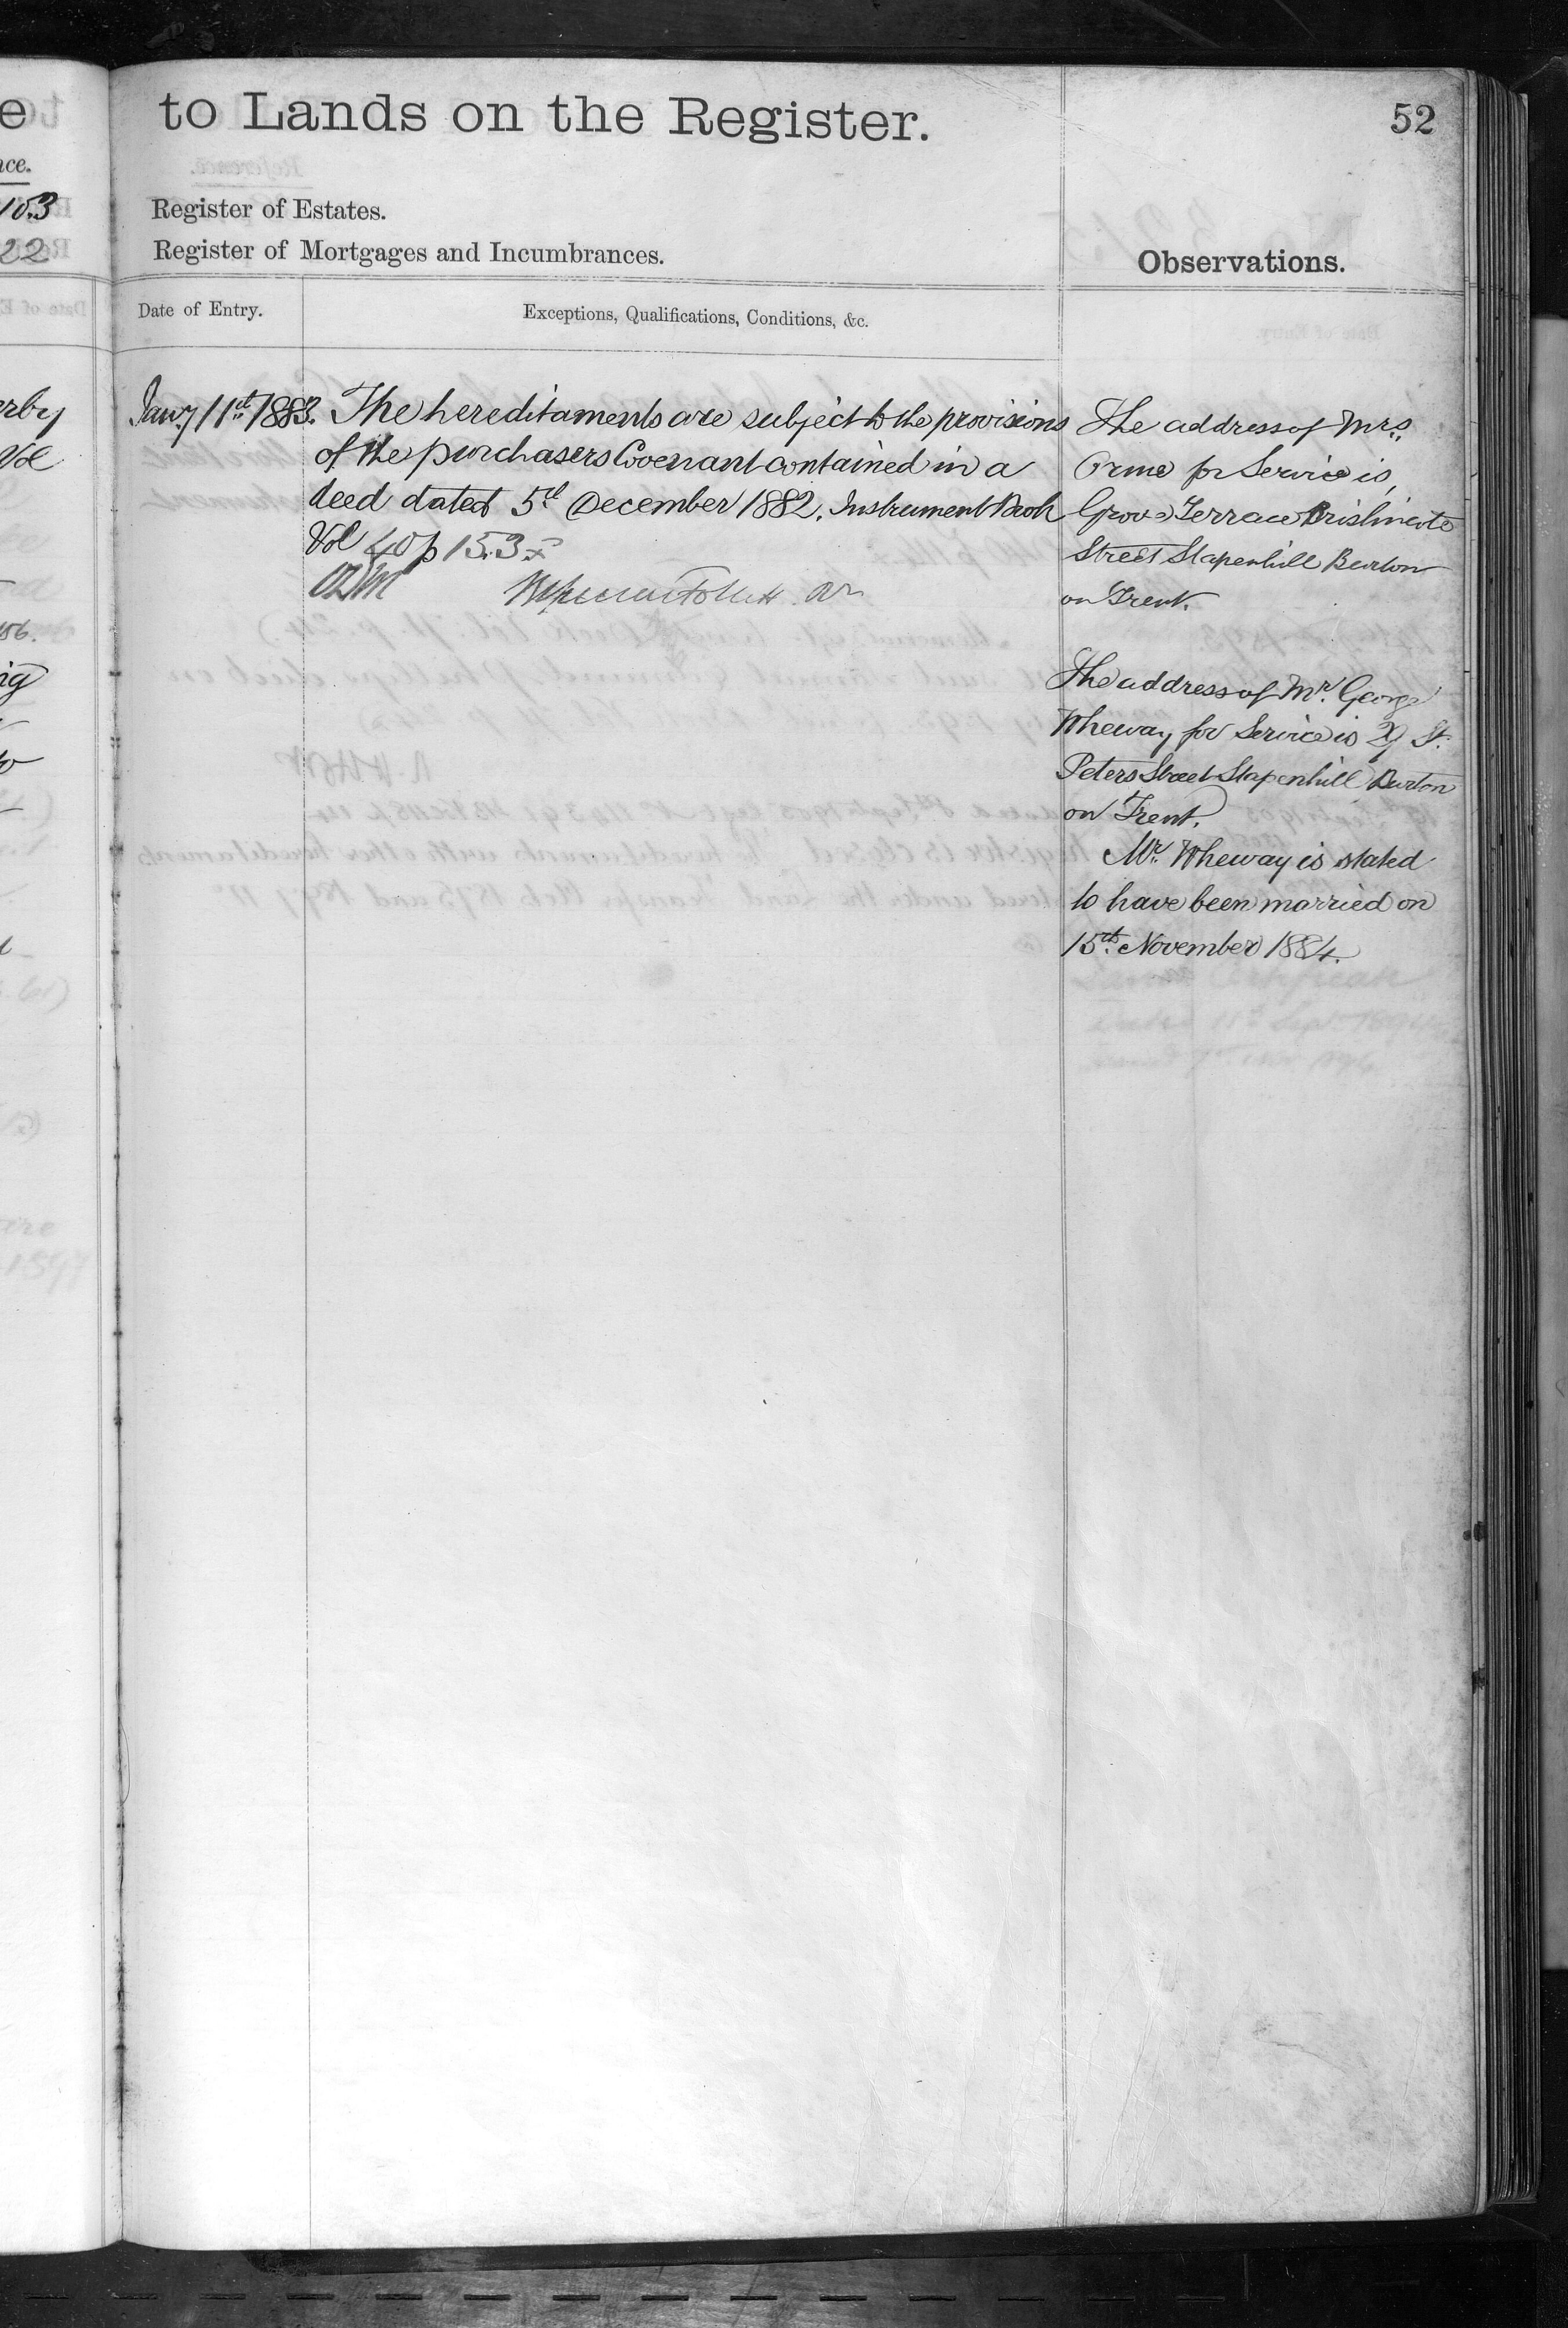 to Lands on the Register.
52
Register of Estates.
Register of Mortgages and Incumbrances.
Observations.
Date of Entry.
Exceptions, Qualifications, Conditions, &c.
Jany 11th 1883. The hereditaments are subject to the provisions
of the purchasers Covenant contained in a
deed dated 5th December 1882. Instrument Book
Vol 40 p 153
The address of Mrs.
Orme for Service is,
Grove Terrace
Street Stapenhill Burton
on Trent.
The address of Mr. George
Wheway for Service is St.
Peters Street Stapenhill Burton
on Trent.
Mr. Wheway is stated
to have been married on
15th November 1884.
erby
Vol
103
22